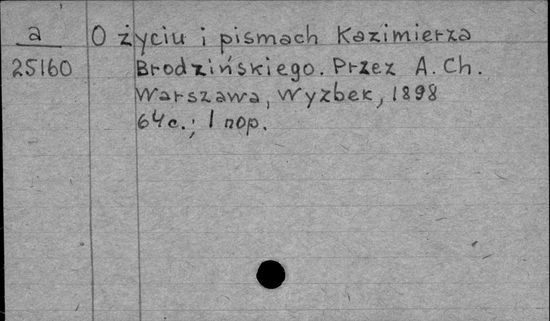 a O życiu i pismach Kazimierza
25160 Brodzińskiego. Przez A. Ch.
Warszawa, Wyzbek, 1898
64 с.; 1 пор.